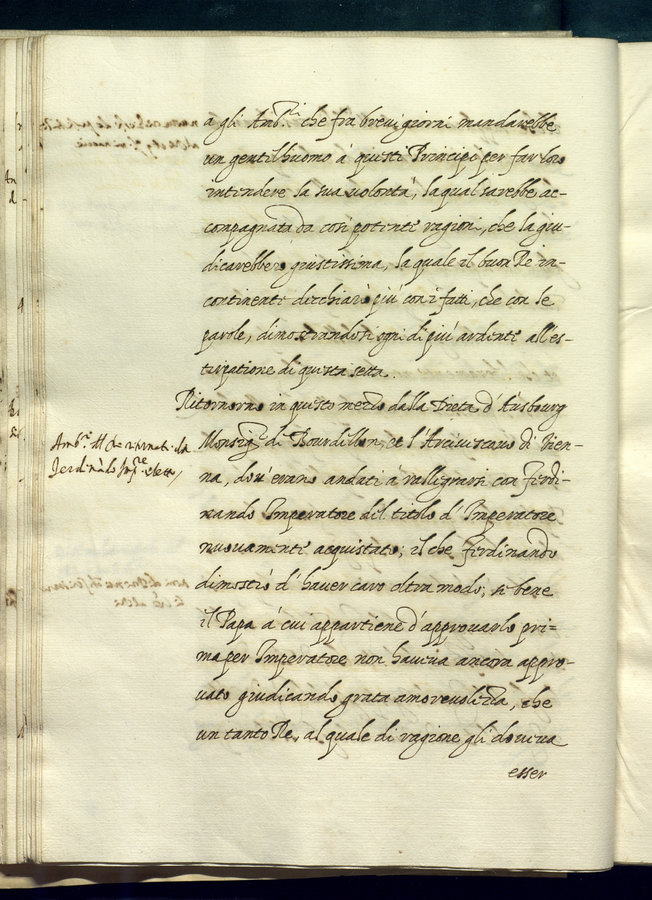 a gli Amb.ri che fra brevi giorni mandarebbe
un gentilhuomo à questi Principi per far loro
intendere la sua volontà, la qual sarebbe ac-
compagnata da così potenti ragioni, che la giu-
dicarebbero giustissima, la quale il buon Re in-
continente dichiarò più con i fatti, che con le
parole, dimostrandosi ogni dì più ardente all'es-
tirpatione di questa setta.
Ritornorno in questo mezo dalla Dieta d'Ausbourg
Monsig.r di Bourdillon, et l'Arcivescovo di Vien-
na, dov'erano andati à rallegrarsi con Ferdi-
nando Imperatore del titolo d'Imperatore
nuovamente acquistato; il che Ferdinando
dimostrò d'haver caro oltra modo; se bene
il Papa à cui appartiene d'approvarlo pri-
ma per Imperatore, non haveva ancora appro-
vato giudicando grata amorevolezza, che
un tanto Re, al quale di ragione gli doveva
esser
Amb.ri del Re ritornati da
Ferdinando Imp.re eletto